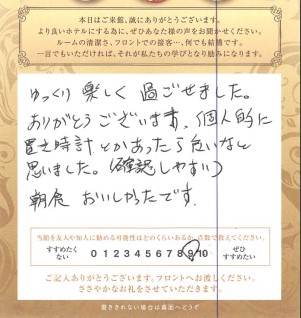 本日はご来館、誠にありがとうございます。
より良いホテルにする為に、ぜひあなた様の声をお聞かせください。
ルームの清潔さ、フロントでの接客…、何でも結構です。
一言でもいただければ、それが私たちの学びとなり励みになります。
ゆっくり 楽しく 過ごせました。
ありがとうございます、個人的に
置き時計とかあったら良いなと
思いました。(確認しやすい)
朝食 おいしかったです。
当館を友人や知人に勧める可能性はどのくらいあるか、点数で教えてください。
すすめたくない 0 1 2 3 4 5 6 7 8 9 10 ぜひすすめたい
ご記入ありがとうございます。フロントへお渡しください。
ささやかなお礼をさせていただきます。
書ききれない場合は裏面へどうぞ